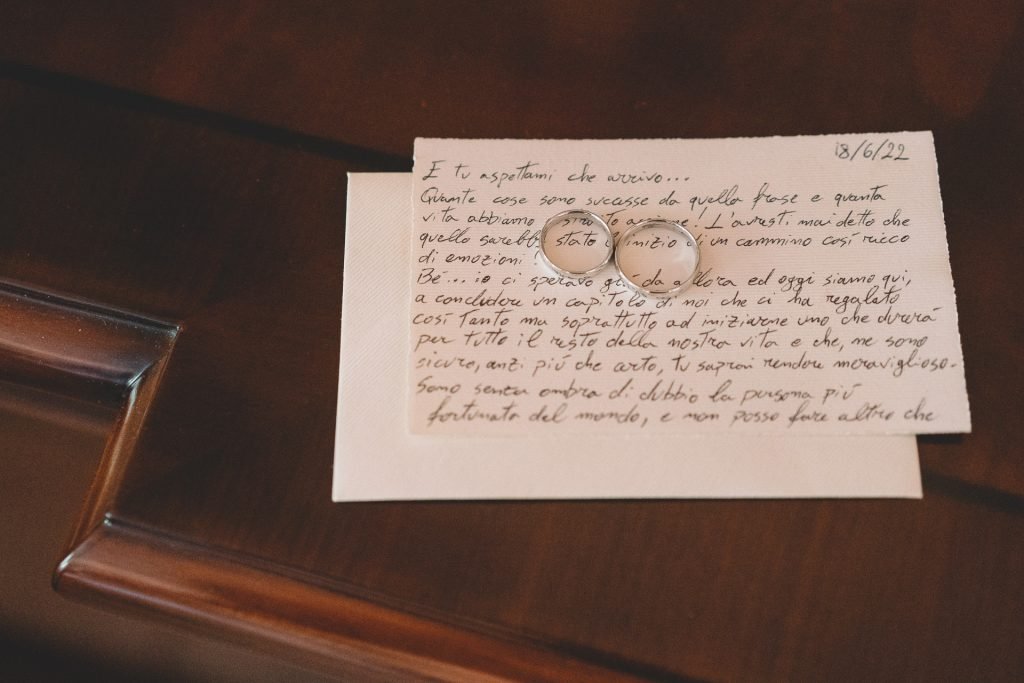 18/6/22
E tu aspettami che arrivo...
Quante cose sono successe da quella frase e quanta
vita abbiamo assieme! L'avresti mai detto che
quello sarebbe stato l'inizio di un cammino così ricco
di emozioni!
Bé... io ci speravo già da allora ed oggi siamo qui,
a concludere un capitolo di noi che ci ha regalato
così tanto ma soprattutto ad iniziarne uno che durerà
per tutto il resto della nostra vita e che, ne sono
sicuro, anzi più che certo, tu saprai rendere meraviglioso.
Sono senza ombra di dubbio la persona più
fortunata del mondo, e non posso fare altro che